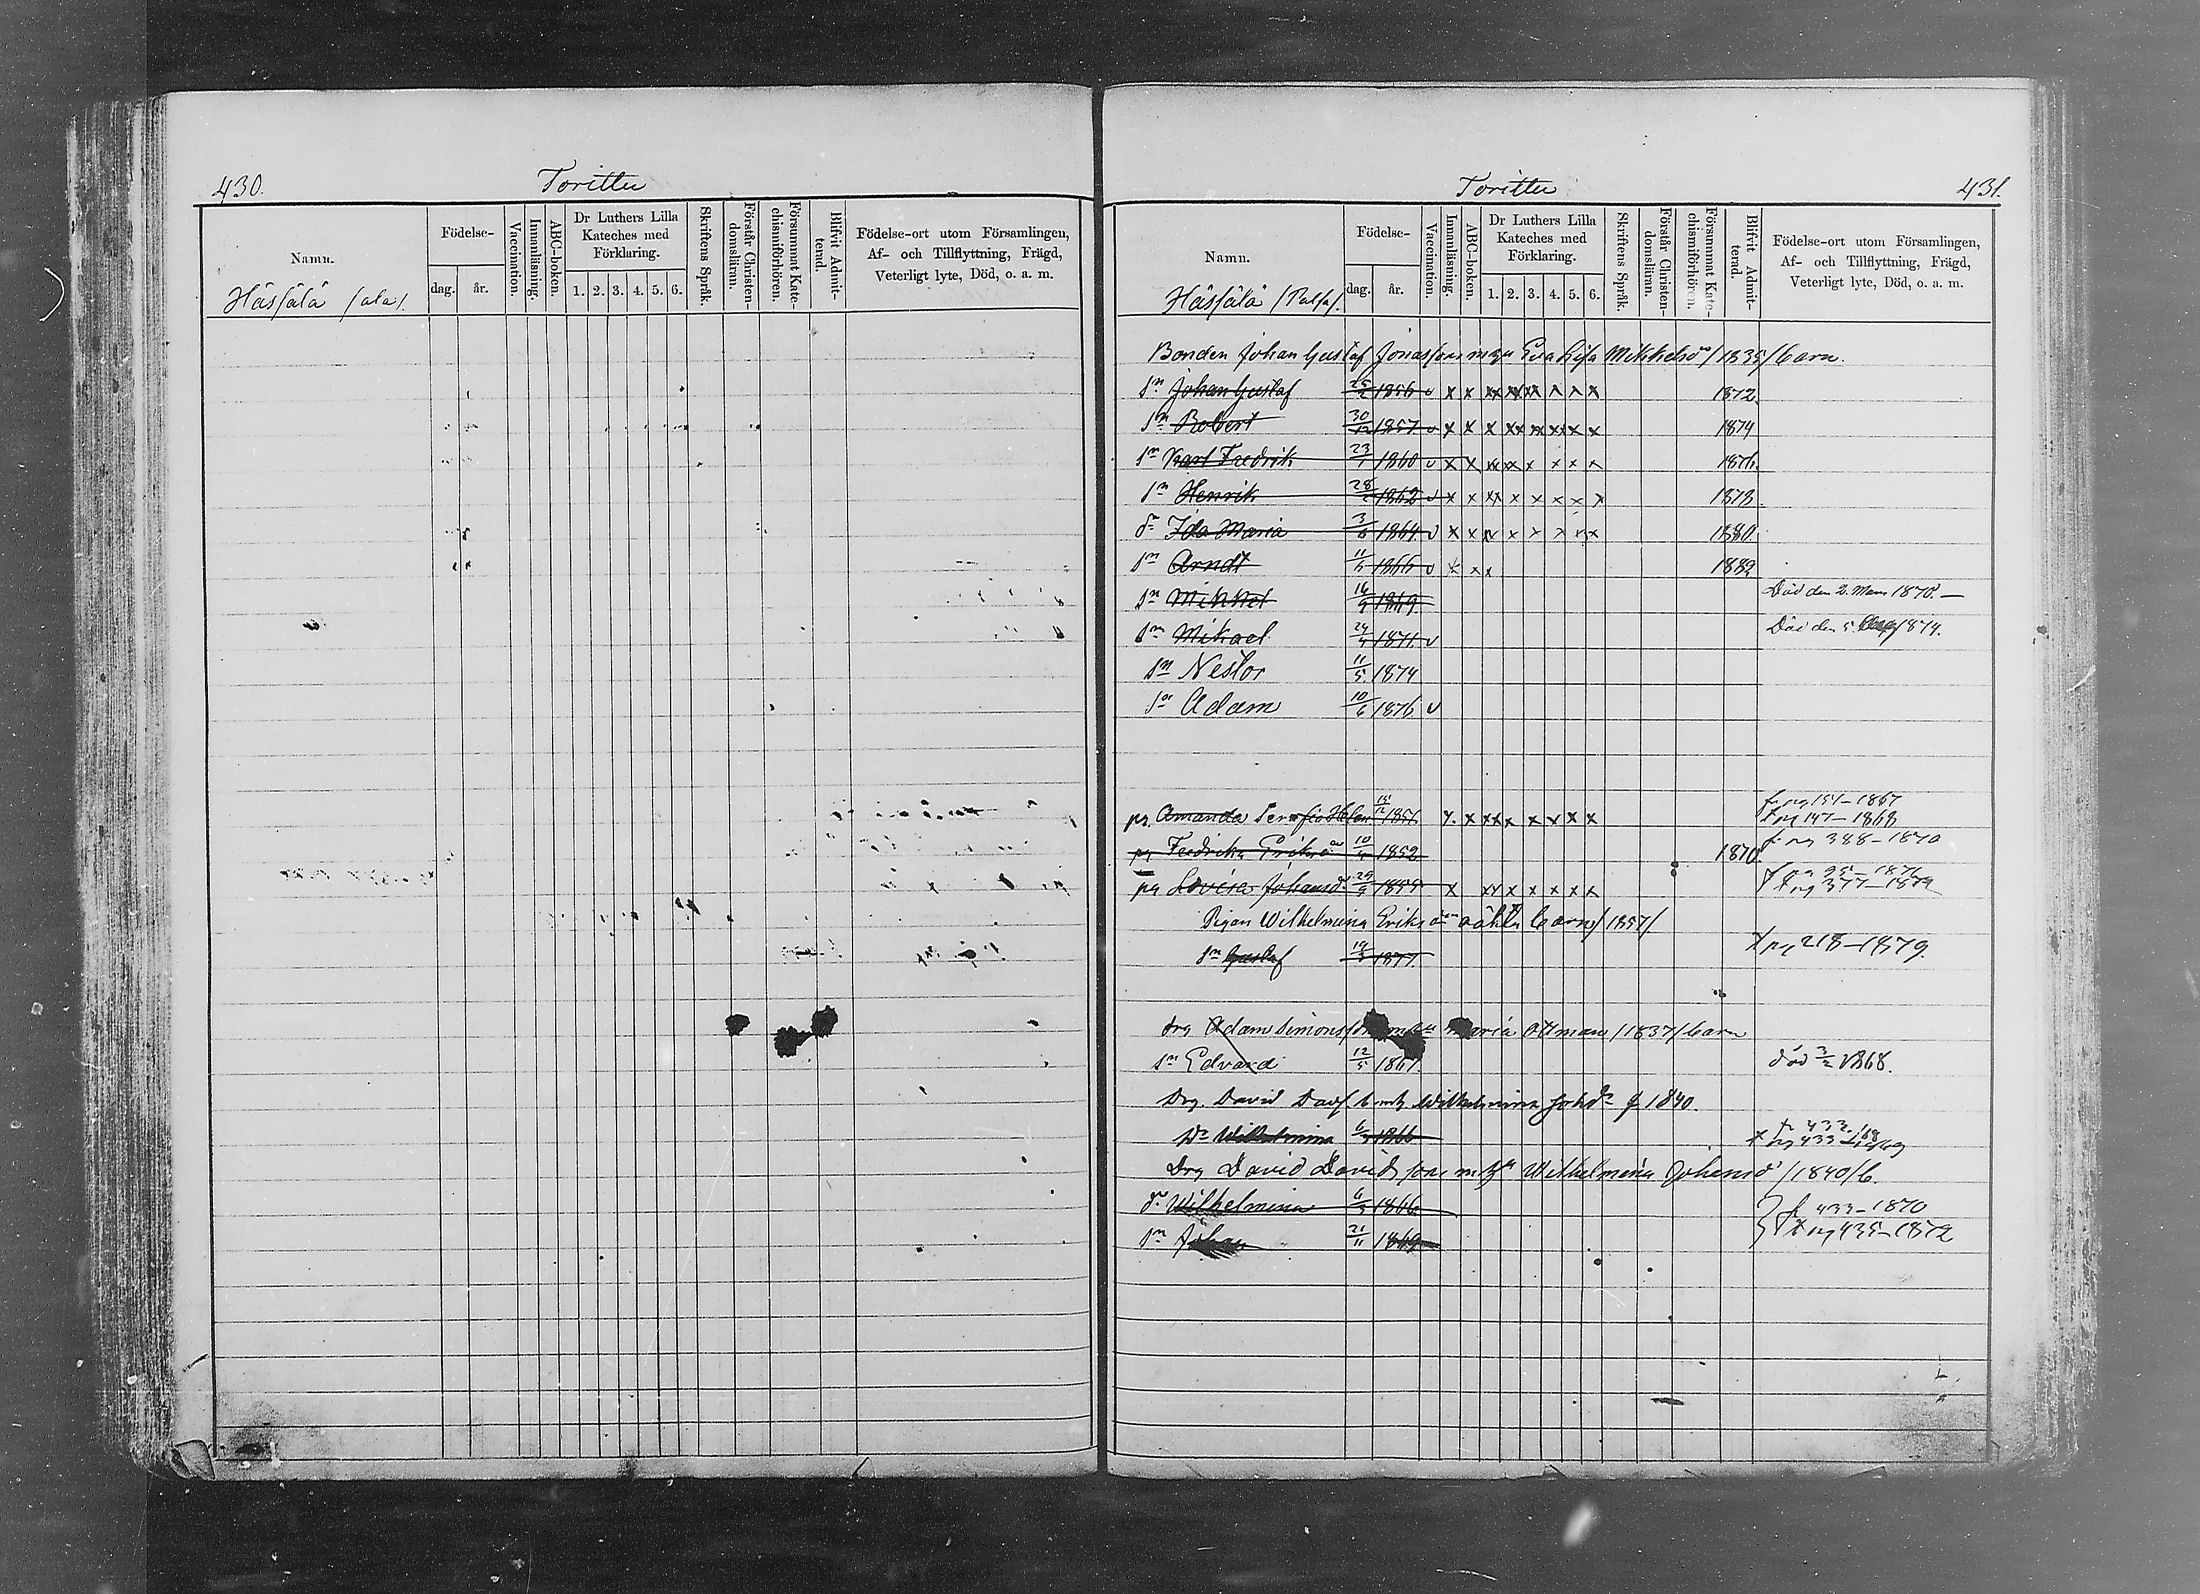 430.
Torittu
Namn.
Födelse-
dag.
år.
Vaccination.
Innanläsning.
ABC-boken.
Dr Luthers Lilla
Kateches med
Förklaring.
1. 2. 3. 4. 5. 6.
Skriftens Språk.
Förstår Christen-
domslärnn.
Försummat Kate-
chismiförhören.
Blifvit Admit-
terad.
Födelse-ort utom Församlingen,
Af- och Tillflyttning, Frägd,
Veterligt lyte, Död, o. a. m.
Hässälä
Torittu
431.
Namn.
Födelse-
dag.
år.
Vaccination.
Innanläsning.
ABC-boken.
Dr Luthers Lilla
Kateches med
Förklaring.
1. 2. 3. 4. 5. 6.
Skriftens Språk.
Förstår Christen-
domslärnn.
Försummat Kate-
chismiförhören.
Blifvit Admit-
terad.
Födelse-ort utom Församlingen,
Af- och Tillflyttning, Frägd,
Veterligt lyte, Död, o. a. m.
Hässälä
Bonden Johan Gustaf Jonasson m hu Eva Lisa Mikkelsdr /1835/ barn.
sn Johan Gustaf 25/2 1856 v x x xx xx xx x x x 1872.
sn Robert 30/12 1857 v x x x xx xx xx x x 1874
sn Karl Fredrik 23/1 1860 v x x xx xx x x x x 1876.
sn Henrik 28/2 1862 v x x xx x x x x x 1878.
dr Ida Maria 3/6 1864 v x x xx x x x xx x 1880.
sn Arndt 1866 v x x x 1882
sn Mikkel 16/9 1869. Död den 2. Mars 1870. —
sn Mikael 24/4 1871. v Död den 5. 1874.
sn Nestor 11/5 1874
sn Adam 10/6 1876 v
pg. Amanda Serafia 15/12 1851 x. x xxx x x x x x fr pg 151–1867
t pg 147–1868
pg Fredrika Eriksdr 10/4 1852 1870. fr pg 388–1870
pg Lovisa Johansdr 29/9 1855 x xx x x x x x
t pg 377–1872
Pigan Wilhelmina Eriksdr oäkta barn /1857/
sn Gustaf 1877. t pg 218–1879.
drg Adam Simonsson m hu Maria Ottman /1837/ barn
sn Edvard 12/5 1867. död 3/2 1868.
Drg. David m h Wilhelmina Johdr f 1840.
Dr Wilhelmina 6/3 1866 fr 433
t pg 433–1869
Drg David Davidsson m hu Wilhelmina Johansdr /1840/ b.
dr Wilhelmina 6/3 1866. fr 433–1870
sn Johan 21/11 1869 t pg 435–1872